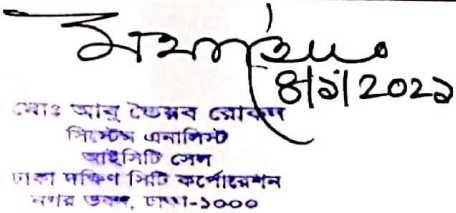 8|9|2021
মোঃ আবু তৈয়ব রোকন
সিস্টেম এনালিস্ট
আইসিটি সেল
ঢাকা দক্ষিণ সিটি কর্পোরেশন
নগর ভবন, ঢাকা-১০০০